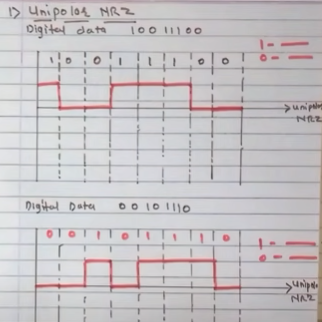 1) Unipolar NRZ
Digital data 10011100
1 -
0 -
1 0 0 1 1 1 0 0
unipolar
NRZ
Digital Data 00101110
0 0 1 0 1 1 1 0
1 -
0 -
unipola
NRZ